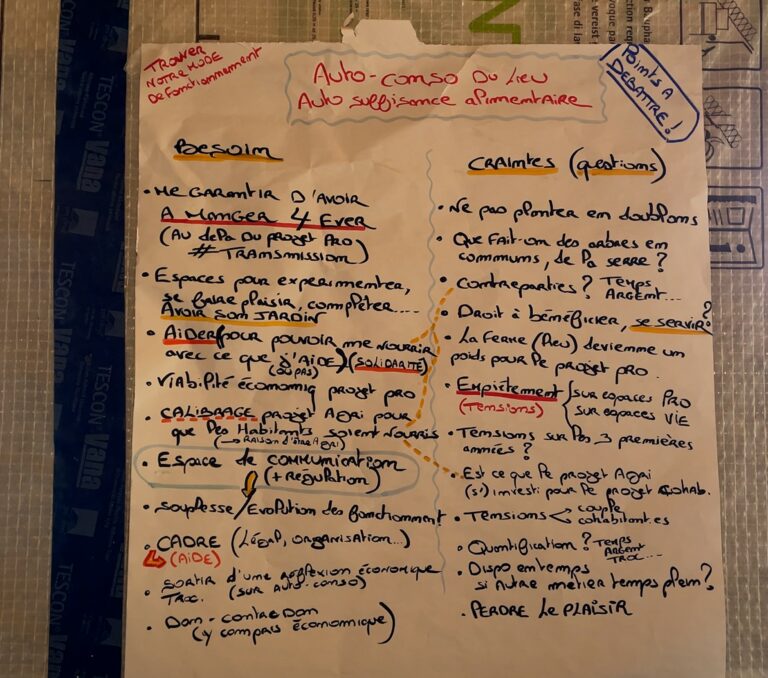 TROUVER
NOTRE MODE
De fonctionnement
Auto-conso Du Lieu
Auto suffisance alimentaire
Points A
DEBATTRE !
Besoin
• Me GARANTIR D'AVOIR
A MANGER 4 EVER
(Au delà Du projet PRO
# TRANSMISSION)
• Espaces pour experimenter,
se faire plaisir, compléter....
Avoir son JARDIN
• AiDER pour pouvoir me nourrir
avec ce que j'AiDE) (SOLIDARITÉ)
(OU PAS)
• Viabilité économiq projet pro
• CALIBRAGE projet Agri pour
que les Habitants soient Nourris
(→ Raison d'être Agri)
• Espace de communication
(+ Régulation)
• souplesse / Evolution des fonctionnement
• CADRE (Légal, organisation...)
(AiDE)
• sortir d'une réflexion économique
TROC. (sur auto-conso)
• Don - contre Don
(y compris économique)
CRAINTES (questions)
• Ne pas planter en doublons
• Que fait-on des arbres en
communs, de la serre ?
• Contreparties ? Temps
ARGENT...
• Droit à bénéficier, se servir ?
• La ferme (lieu) devienne un
poids pour le projet pro.
• Empiètement
(Tensions)
sur espaces PRO
sur espaces VIE
• Tensions sur les 3 premières
années ?
• Est ce que le projet Agri
(s') investi pour le projet cohab.
• Tensions
couple
cohabitant.es
• Quantification ? Temps
Argent
TROC....
• Dispo en temps
si Autre métier temps plein ?
• PERDRE Le PLAISIR
TESCON Vana
TESCON Vana
TESCON Vana
TESCON Vana